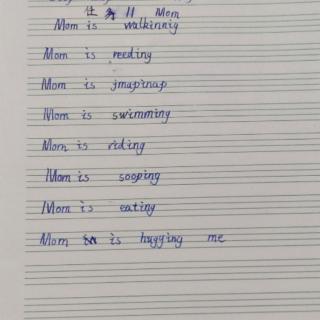 任务11 Mom
Mom is walkinnig
Mom is reeding
Mom is jmapinap
Mom is swimming
Mom is riding
Mom is sooping
Mom is eating
Mom is hugging me